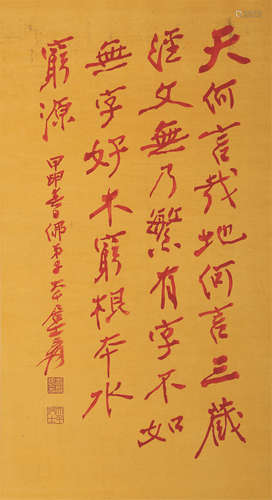 天何言哉地何言三藏
經文無乃繁有字不如
無字好木窮根本水
窮源
甲申春日佛弟子大千居士爰